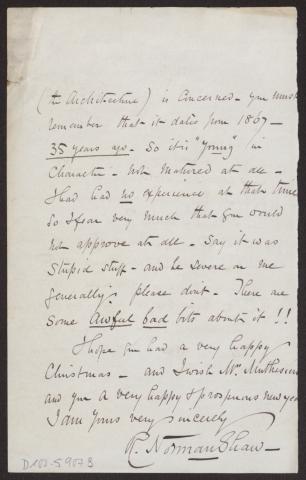 (the Architecture) is concerned - you must
remember that it dates from 1867 -
35 years ago. So it is "Young" in
Character - not matured at all -
I had had no experience at that time
So I fear very much that you would
not approve at all - Say it was
stupid stuff - and be severe on me
generally! please don't - There are
some awful bad bits about it !!
I hope you had a very happy
Christmas - and I wish Mrs Muthesius
and you a very happy & prosperous new year
I am yours very sincerely
R. Norman Shaw -
D102-59073